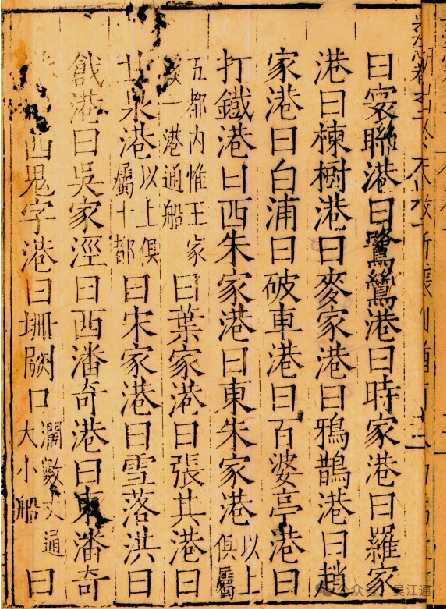 曰寰聮港曰鷺鷥港曰時家港曰羅家
港曰楝樹港曰麥家港曰鴉鵲港曰趙
家港曰白浦曰破車港曰百婆亭港曰
打鐵港曰西朱家港曰東朱家港以上俱屬
五都内惟王家一港通船曰葉家港曰張其港曰
泉港以上俱屬十都曰宋家港曰雪落洪曰
戧港曰吳家涇曰西潘奇港曰東潘奇
西鬼字港曰堋闕口濶數丈通大小船曰